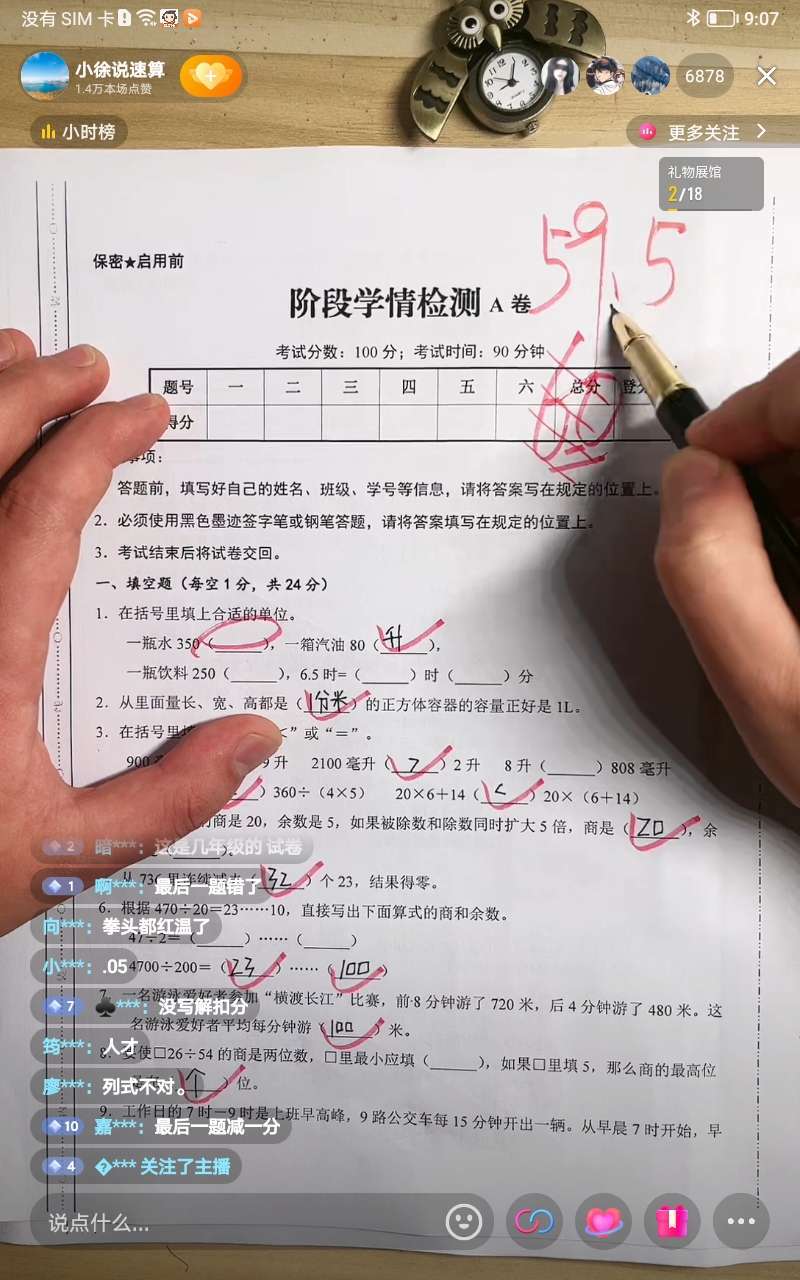 没有 SIM 卡 9:07
小徐说速算
1.4万本场点赞
6878
小时榜
更多关注
礼物展馆
2/18
59.5
保密★启用前
阶段学情检测 A 卷
考试分数：100 分；考试时间：90 分钟
题号 一 二 三 四 五 六 总分
得分
事项：
答题前，填写好自己的姓名、班级、学号等信息，请将答案写在规定的位置上。
2．必须使用黑色墨迹签字笔或钢笔答题，请将答案填写在规定的位置上。
3．考试结束后将试卷交回。
一、填空题（每空 1 分，共 24 分）
1．在括号里填上合适的单位。
一瓶水 350（______），一箱汽油 80（升），
一瓶饮料 250（______），6.5 时=（______）时（______）分
2．从里面量长、宽、高都是（1分米）的正方体容器的容量正好是 1L。
3．在括号里 ”或“＝”。
900 9升 2100 毫升（＞）2 升 8 升（______）808 毫升
）360÷（4×5） 20×6+14（＜）20×（6+14）
商是 20，余数是 5，如果被除数和除数同时扩大 5 倍，商是（20），余
暗***：这是几年级的 试卷
从 736 里连续减去（32）个 23，结果得零。
啊***：最后一题错了
6．根据 470÷20=23……10，直接写出下面算式的商和余数。
向***：拳头都红温了
47÷2=（______）……（______）
小***：.05
4700÷200=（23）……（100）
7．一名游泳爱好者参加“横渡长江”比赛，前 8 分钟游了 720 米，后 4 分钟游了 480 米。这
♠***：没写解扣分
名游泳爱好者平均每分钟游（100）米。
筠***：人才
8．要使□26÷54 的商是两位数，□里最小应填（______），如果□里填 5，那么商的最高位
廖***：列式不对。
（个）位。
9．工作日的 7 时－9 时是上班早高峰，9 路公交车每 15 分钟开出一辆。从早晨 7 时开始，早
嘉***：最后一题减一分
*** 关注了主播
说点什么...